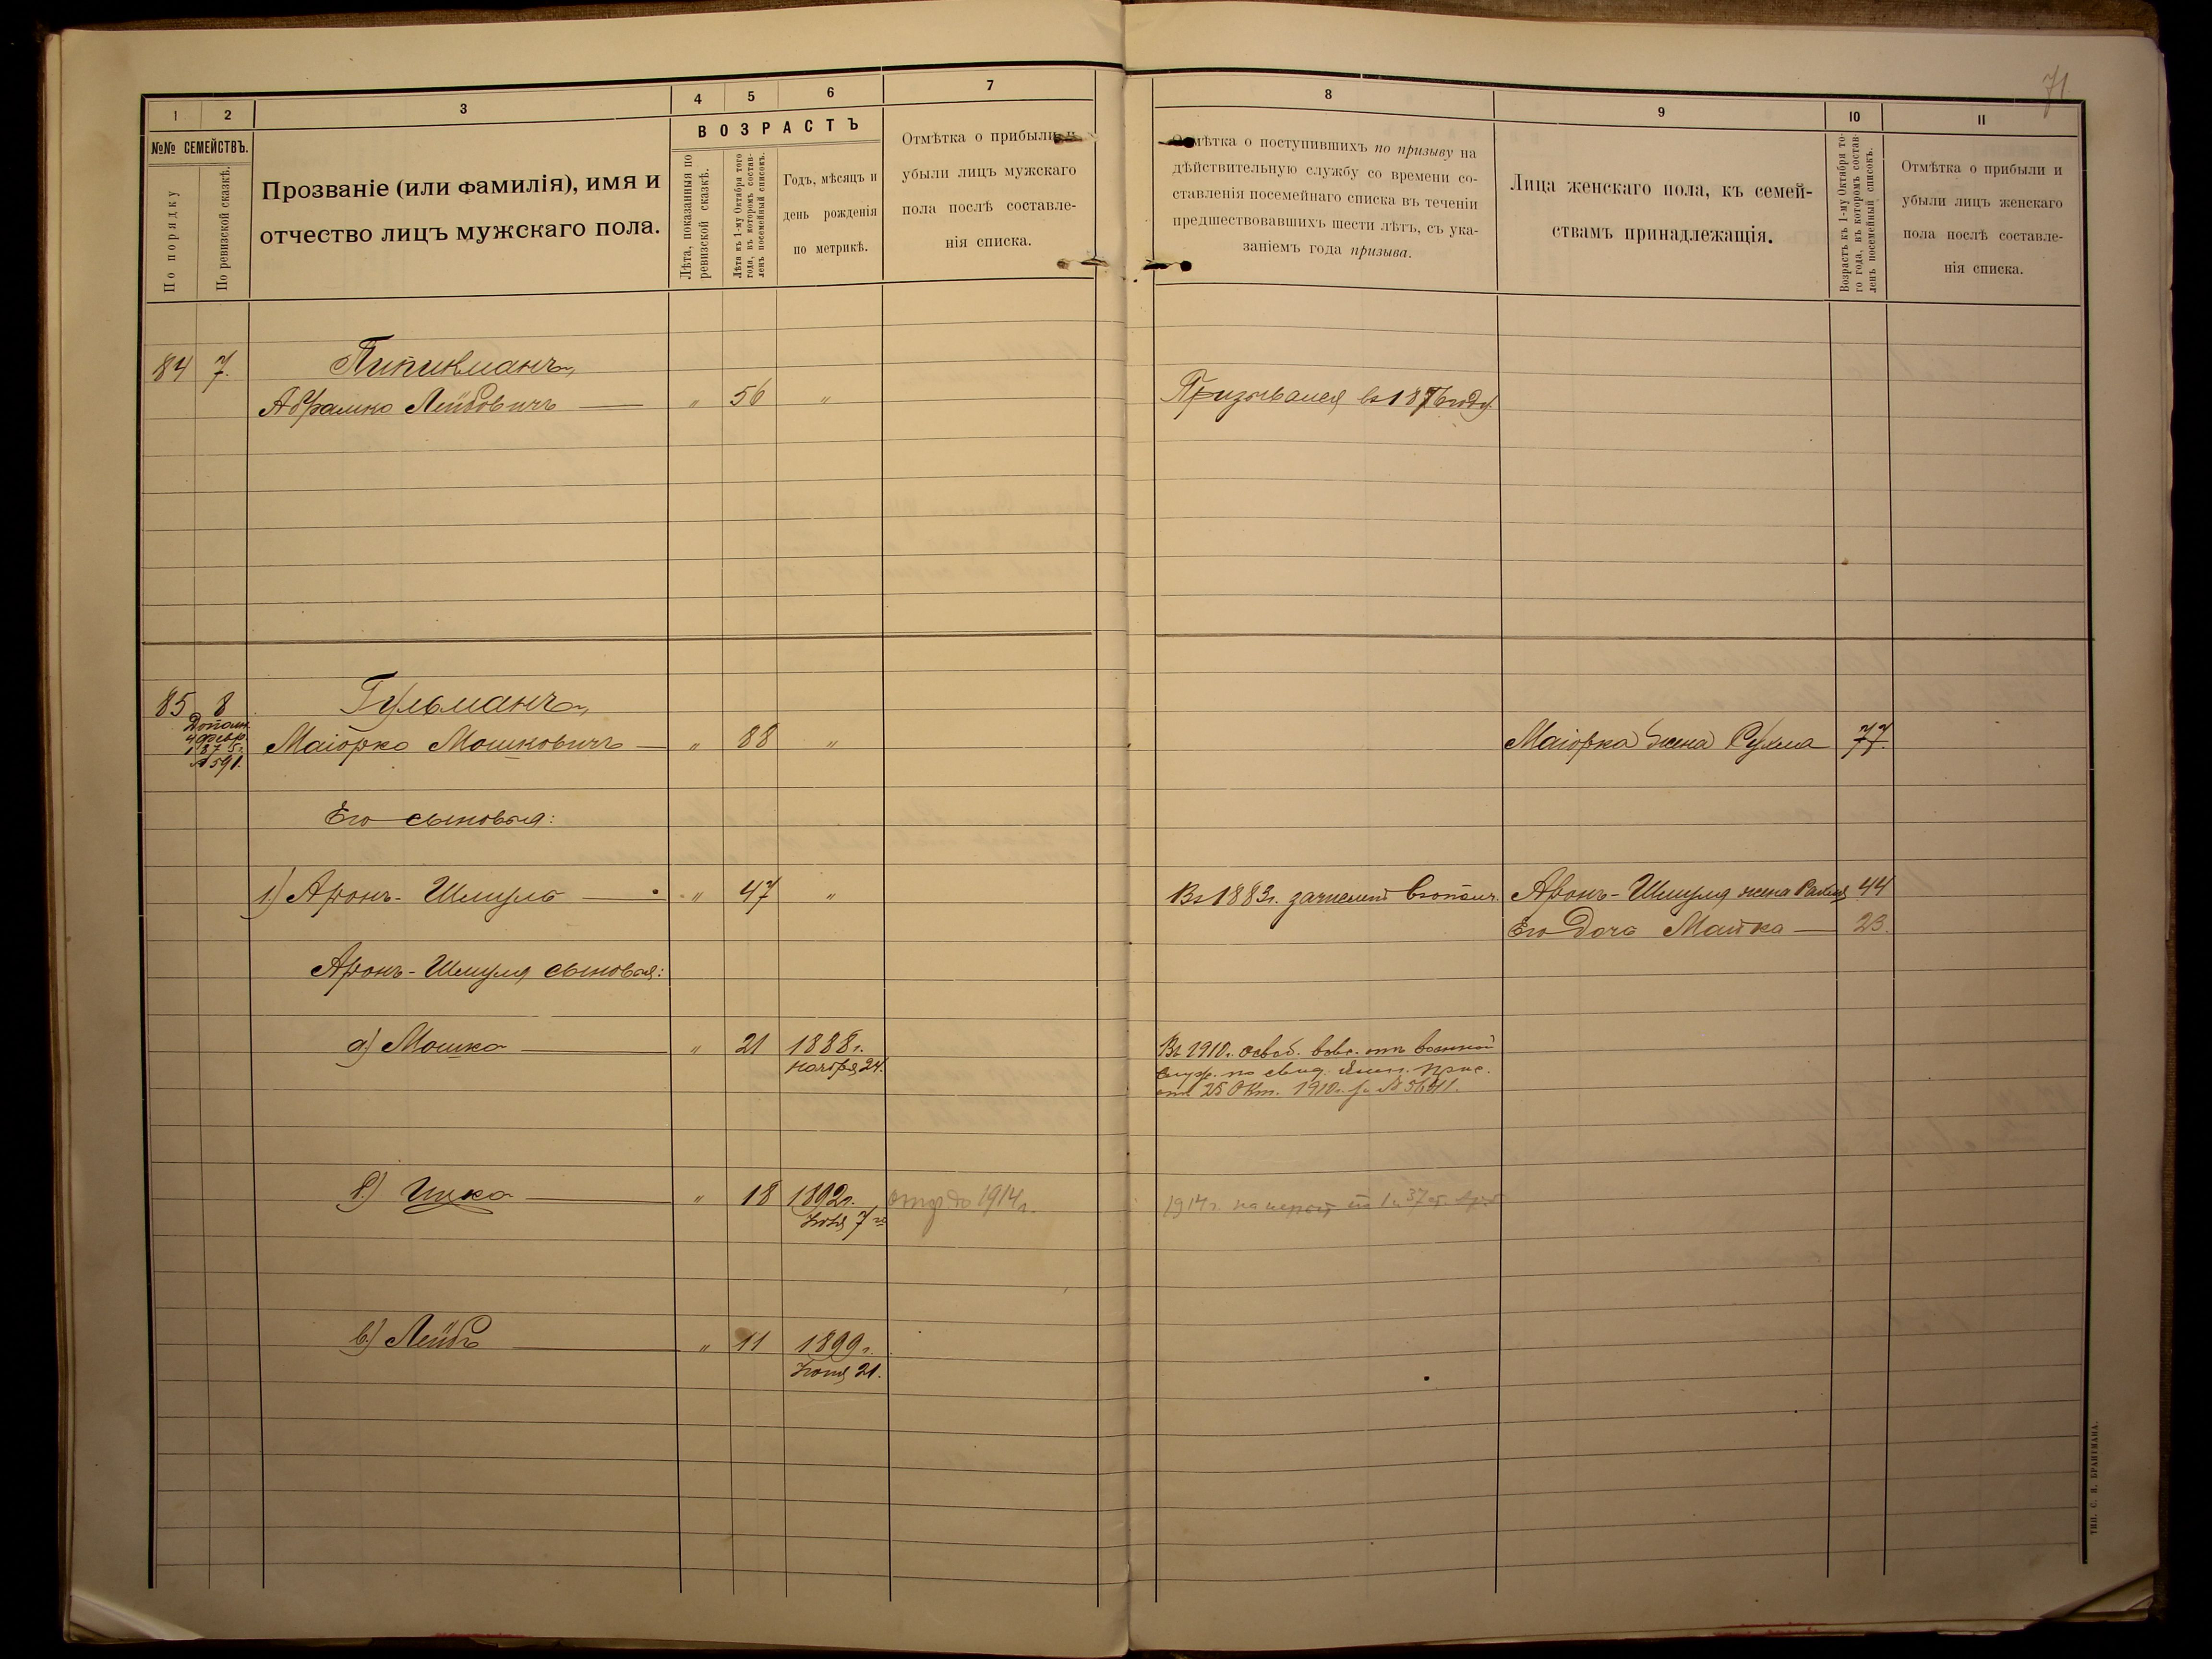 71
1
2
3
4
5
6
7
8
9
10
11
№№ СЕМЕЙСТВЪ.
По порядку
По ревизской сказкѣ.
Прозваніе (или фамилія), имя и
отчество лицъ мужскаго пола.
ВОЗРАСТЪ
Лѣта, показанныя по
ревизской сказкѣ.
Лѣта къ 1-му Октября того
года, въ которомъ состав-
ленъ посемейный списокъ.
Годъ, мѣсяцъ и
день рожденія
по метрикѣ.
Отмѣтка о прибыли и
убыли лицъ мужскаго
пола послѣ составле-
нія списка.
Отмѣтка о поступившихъ по призыву на
дѣйствительную службу со времени со-
ставленія посемейнаго списка въ теченіи
предшествовавшихъ шести лѣтъ, съ ука-
заніемъ года призыва.
Лица женскаго пола, къ семей-
ствамъ принадлежащія.
Возрастъ къ 1-му Октября то-
го года, въ которомъ состав-
ленъ посемейный списокъ.
Отмѣтка о прибыли и
убыли лицъ женскаго
пола послѣ составле-
нія списка.
84 7. Пипикманъ,
Абрамко Лейбовичъ — „ 56 „ Призывался въ 1876 году.
85 8 Гульманъ,
Дополн.
4 Февр.
1875 г.
№ 591.
Маіорко Мошковичъ — „ 88 „ Маіорка жена Рухля 77.
Его сыновья:
1) Аронъ-Шмуль — „ 47 „ Въ 1883 г. зачисленъ въ ополч. Аронъ-Шмуля жена 44
Его дочь Матка — 23.
Аронъ-Шмуля сыновья:
а) Мошко — „ 21 1888 г.
Ноября 24.
Въ 1910 г. освоб. вовс. отъ военной
служ. по свид. прис.
отъ 25 Окт. 1910 г. за №
б) Ицко — „ 18 1892 г.
7 го
отср. до 1914 г.
1914 г. 37 ст.
в) Лейбъ — „ 11 1899 г.
Іюня 21.
ТИП. С. И. БРАНТМАНА.